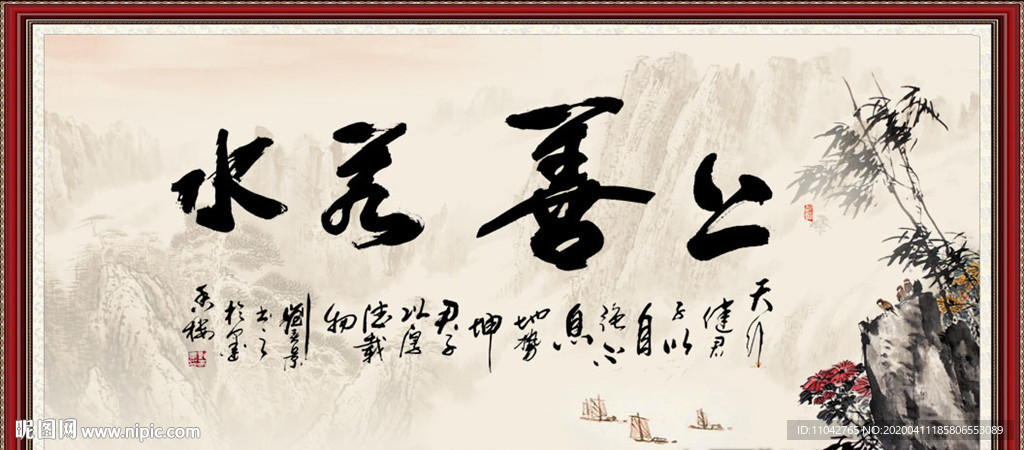 上善若水
天行
健君
子以
自
强不
息
地势
坤
君子
以厚
德载
物
刘云景
书之
於
香楼
昵图网 www.nipic.com
ID:11042765 NO:20200411185806553089